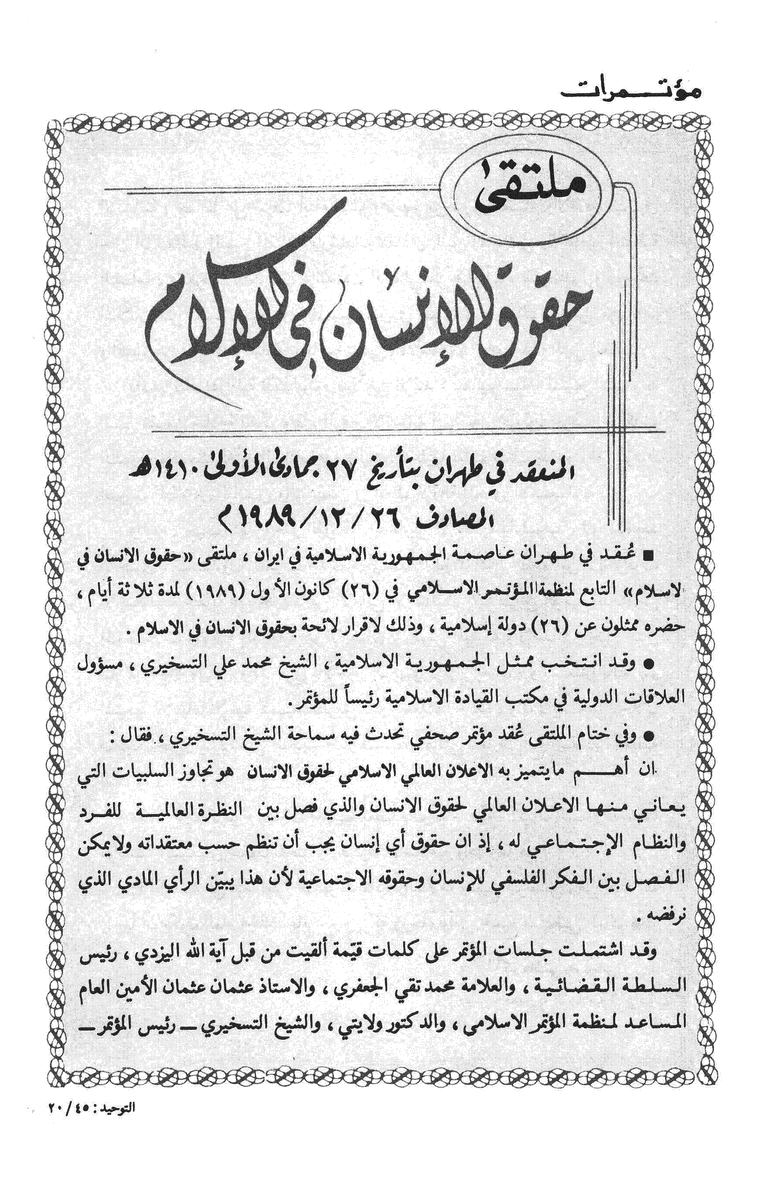 مؤتمرات
ملتقى
حقوق الإنسان في الإسلام
المنعقد في طهران بتأريخ ٢٧ جمادى الأولى ١٤١٠هـ
المصادف ٢٦/١٢/١٩٨٩م
■ عُقد في طهران عاصمة الجمهورية الاسلامية في ايران ، ملتقى «حقوق الانسان في
لاسلام» التابع لمنظمة المؤتمر الاسلامي في (٢٦) كانون الأول (١٩٨٩) لمدة ثلاثة أيام ،
حضره ممثلون عن (٢٦) دولة إسلامية ، وذلك لاقرار لائحة بحقوق الانسان في الاسلام .
● وقد انتخب ممثل الجمهورية الاسلامية ، الشيخ محمد علي التسخيري ، مسؤول
العلاقات الدولية في مكتب القيادة الاسلامية رئيساً للمؤتمر .
● وفي ختام الملتقى عُقد مؤتمر صحفي تحدث فيه سماحة الشيخ التسخيري ، فقال :
ان أهم مايتميز به الاعلان العالمي الاسلامي لحقوق الانسان هو تجاوز السلبيات التي
يعاني منها الاعلان العالمي لحقوق الانسان والذي فصل بين النظرة العالمية للفرد
والنظام الإجتماعي له ، إذ ان حقوق أي إنسان يجب أن تنظم حسب معتقداته ولايمكن
الفصل بين الفكر الفلسفي للإنسان وحقوقه الاجتماعية لأن هذا يبيّن الرأي المادي الذي
نرفضه .
وقد اشتملت جلسات المؤتمر على كلمات قيّمة ألقيت من قبل آية الله اليزدي ، رئيس
السلطة القضائية ، والعلامة محمد تقي الجعفري ، والاستاذ عثمان عثمان الأمين العام
المساعد لمنظمة المؤتمر الاسلامي ، والدكتور ولايتي ، والشيخ التسخيري ــ رئيس المؤتمر ــ
التوحيد : ٤٥ / ٢٠